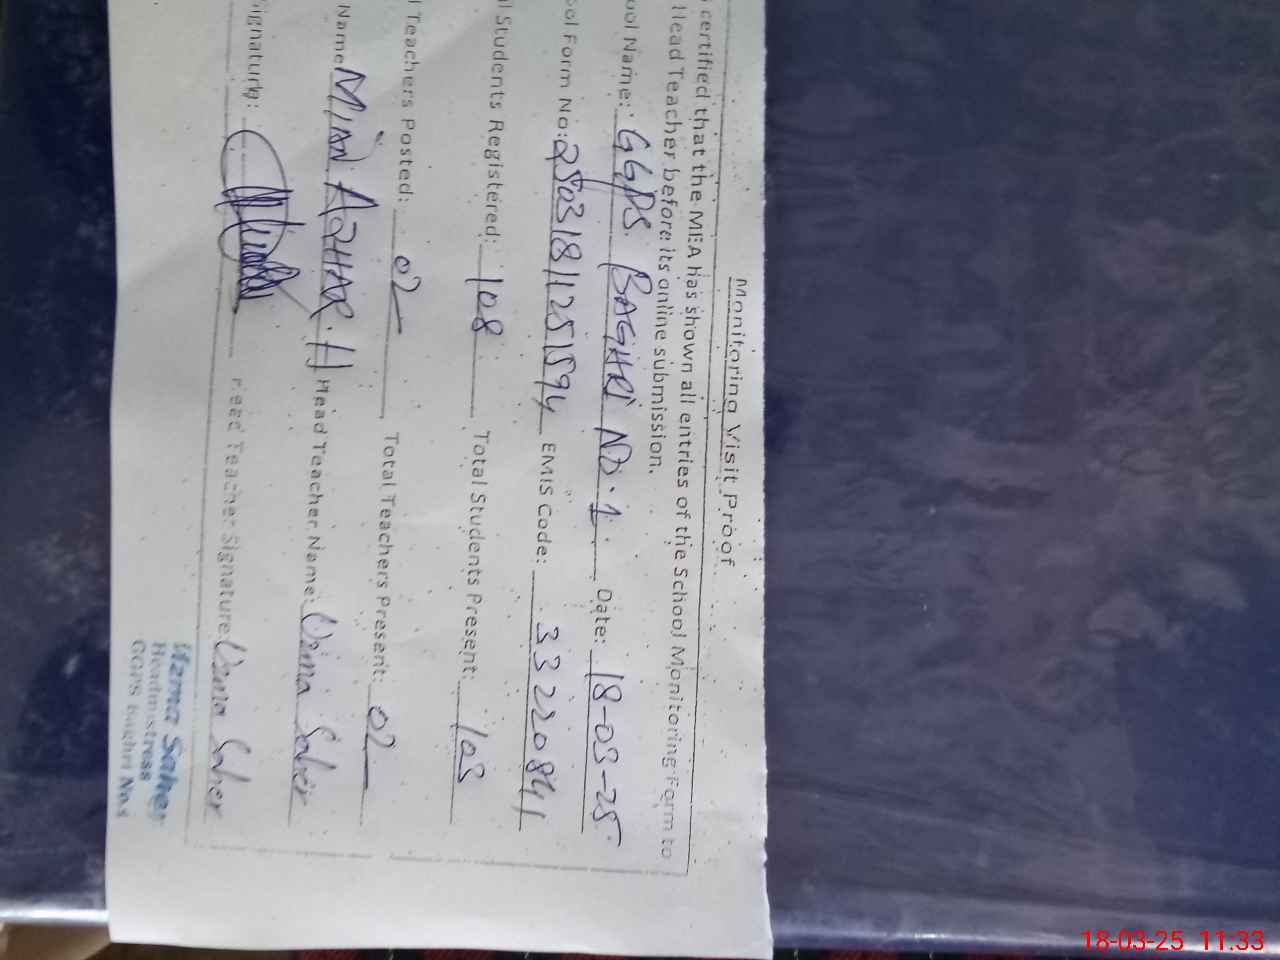 Monitoring Visit Proof
certified that the MEA has shown all entries of the School Monitoring Form to
Head Teacher before its online submission.
ool Name: GGPS. BAGHRI NO.1 Date: 18-03-25
ool Form No: 2803181125 1594 EMIS Code: 33220841
l Students Registered: 108 Total Students Present: 103
l Teachers Posted: 02 Total Teachers Present: 02
Name: MIAN AZHAR. H Head Teacher Name: Uzma Saher
Signature: Head Teacher Signature: Uzma Saher
Uzma Saher
Headmistress
GGPS Baghri No.1
18-03-25 11:33